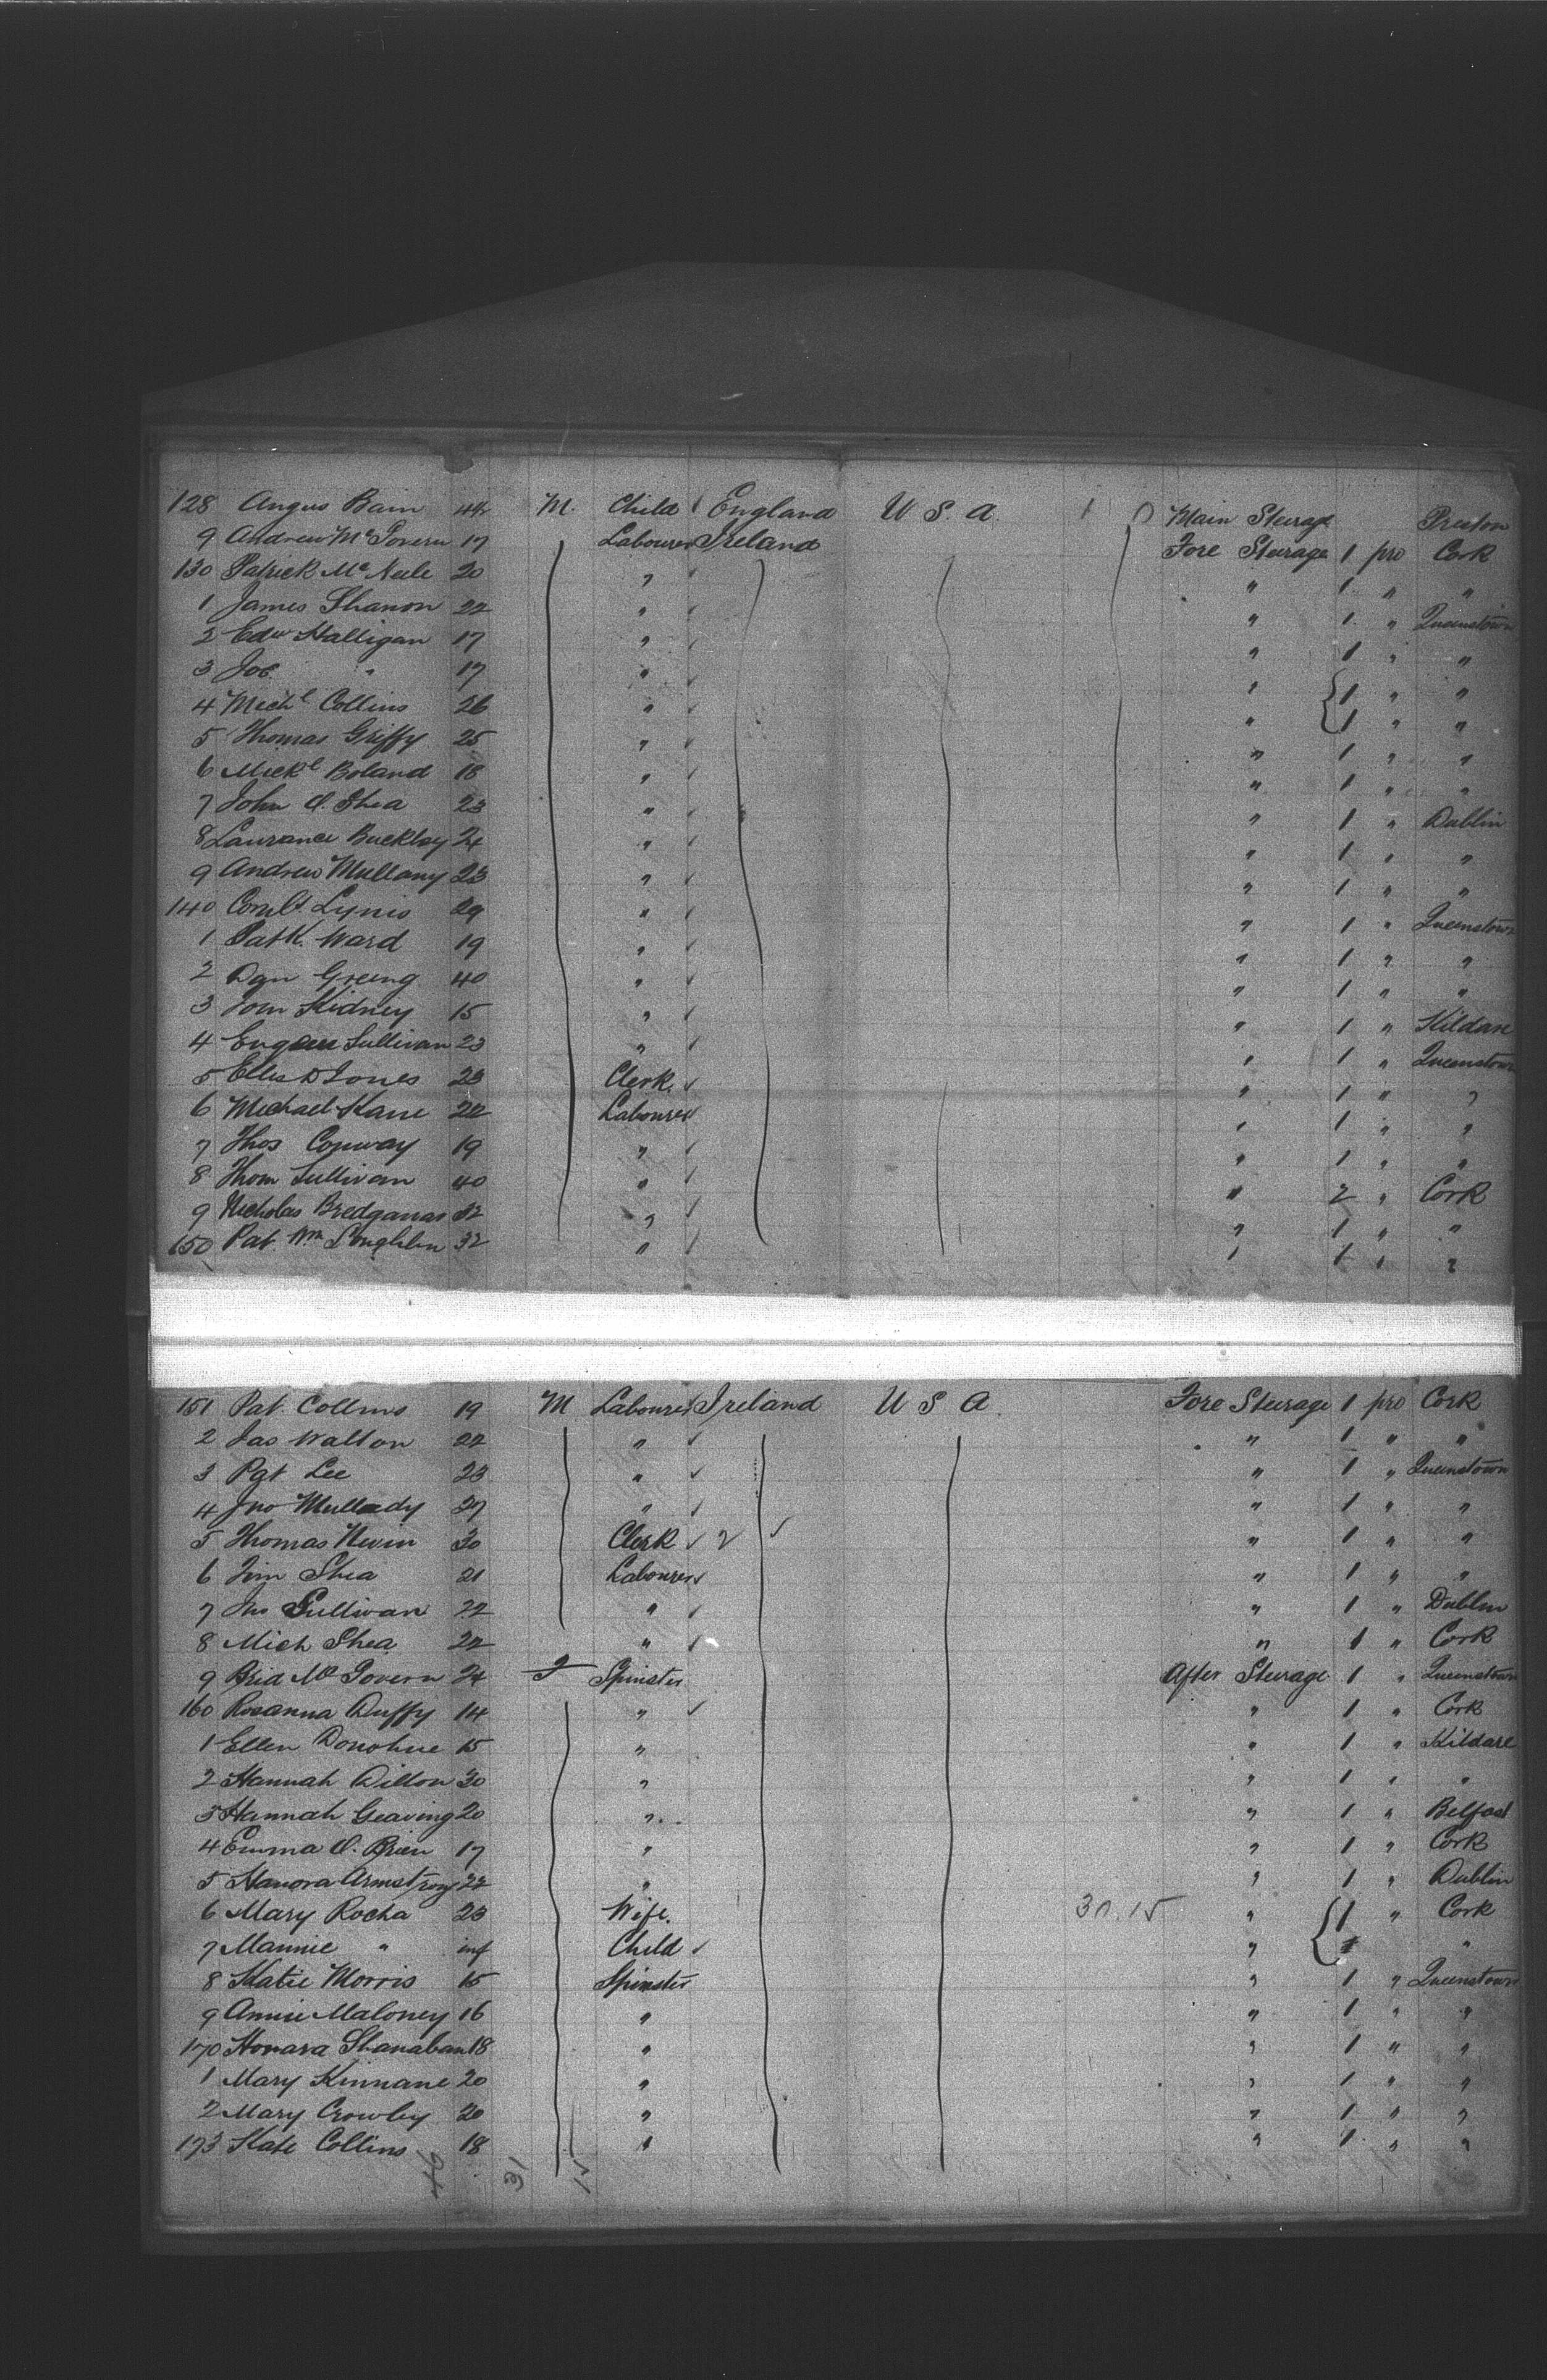 128 Angus Bain M. Child England U S. A. Main Steerage Preston
9 Andrew McGovern 17 Labourer Ireland Fore Steerage 1 pro Cork
130 Patrick McNeele 20 " " 1 " "
1 James Shanon 22 " " 1 " Queenstown
2 Edw Halligan 17 " " 1 " "
3 Jos " 17 " " 1 " "
4 Michl Collins 26 " " 1 " "
5 Thomas Griffy 25 " " 1 " "
6 Mickl Boland 18 " " 1 " "
7 John O. Shea 23 " " 1 " Dublin
8 Laurance Buckley 24 " " 1 " "
9 Andrew Mullany 23 " " 1 " "
140 Lynis 29 " " 1 " Queenstown
1 Patk. Ward 19 " " 1 " "
2 Dan 40 " " 1 " "
3 Tom Kidney 15 " " 1 " Kildare
4 Sullivan 23 " " 1 " Queenstown
5 Ellis D Jones 23 Clerk " 1 " "
6 Michael Kane 22 Labourer " 1 " "
7 Thos Conway 19 " " 1 " "
8 Thom Sullivan 40 " " 2 " Cork
9 Nicholas 32 " " 1 " "
150 Pat. Wm Loughlin 32 " " 1 " "
151 Pat Collins 19 M Labourer Ireland U S A. Fore Steerage 1 pro Cork
2 Jas Walton 22 " " 1 " "
3 Pat Lee 23 " " 1 " Queenstown
4 Jno Mullady 27 " " 1 " "
5 Thomas Nevin 30 Clerk " 1 " "
6 Jim Shea 21 Labourer " 1 " "
7 Jno Sullivan 22 " " 1 " Dublin
8 Mich Shea 22 " " 1 " Cork
9 Brid McGovern 24 F Spinster After Steerage 1 " Queenstown
160 Rosanna Duffy 14 " " 1 " Cork
1 Ellen Donohue 15 " " 1 " Kildare
2 Hannah Dillon 30 " " 1 " "
3 Hannah Geaving 20 " " 1 " Belfast
4 Emma O. Brien 17 " " 1 " Cork
5 Hanora Armstrong 22 " " 1 " Dublin
6 Mary Rocha 23 Wife. " 1 " Cork
7 Mannie " inf Child " "
8 Katie Morris 15 Spinster " 1 " Queenstown
9 Annie Maloney 16 " " 1 " "
170 Honara Shanahan 18 " " 1 " "
1 Mary Kinnane 20 " " 1 " "
2 Mary Crowley 20 " " 1 " "
173 Kate Collins 18 " " 1 " "